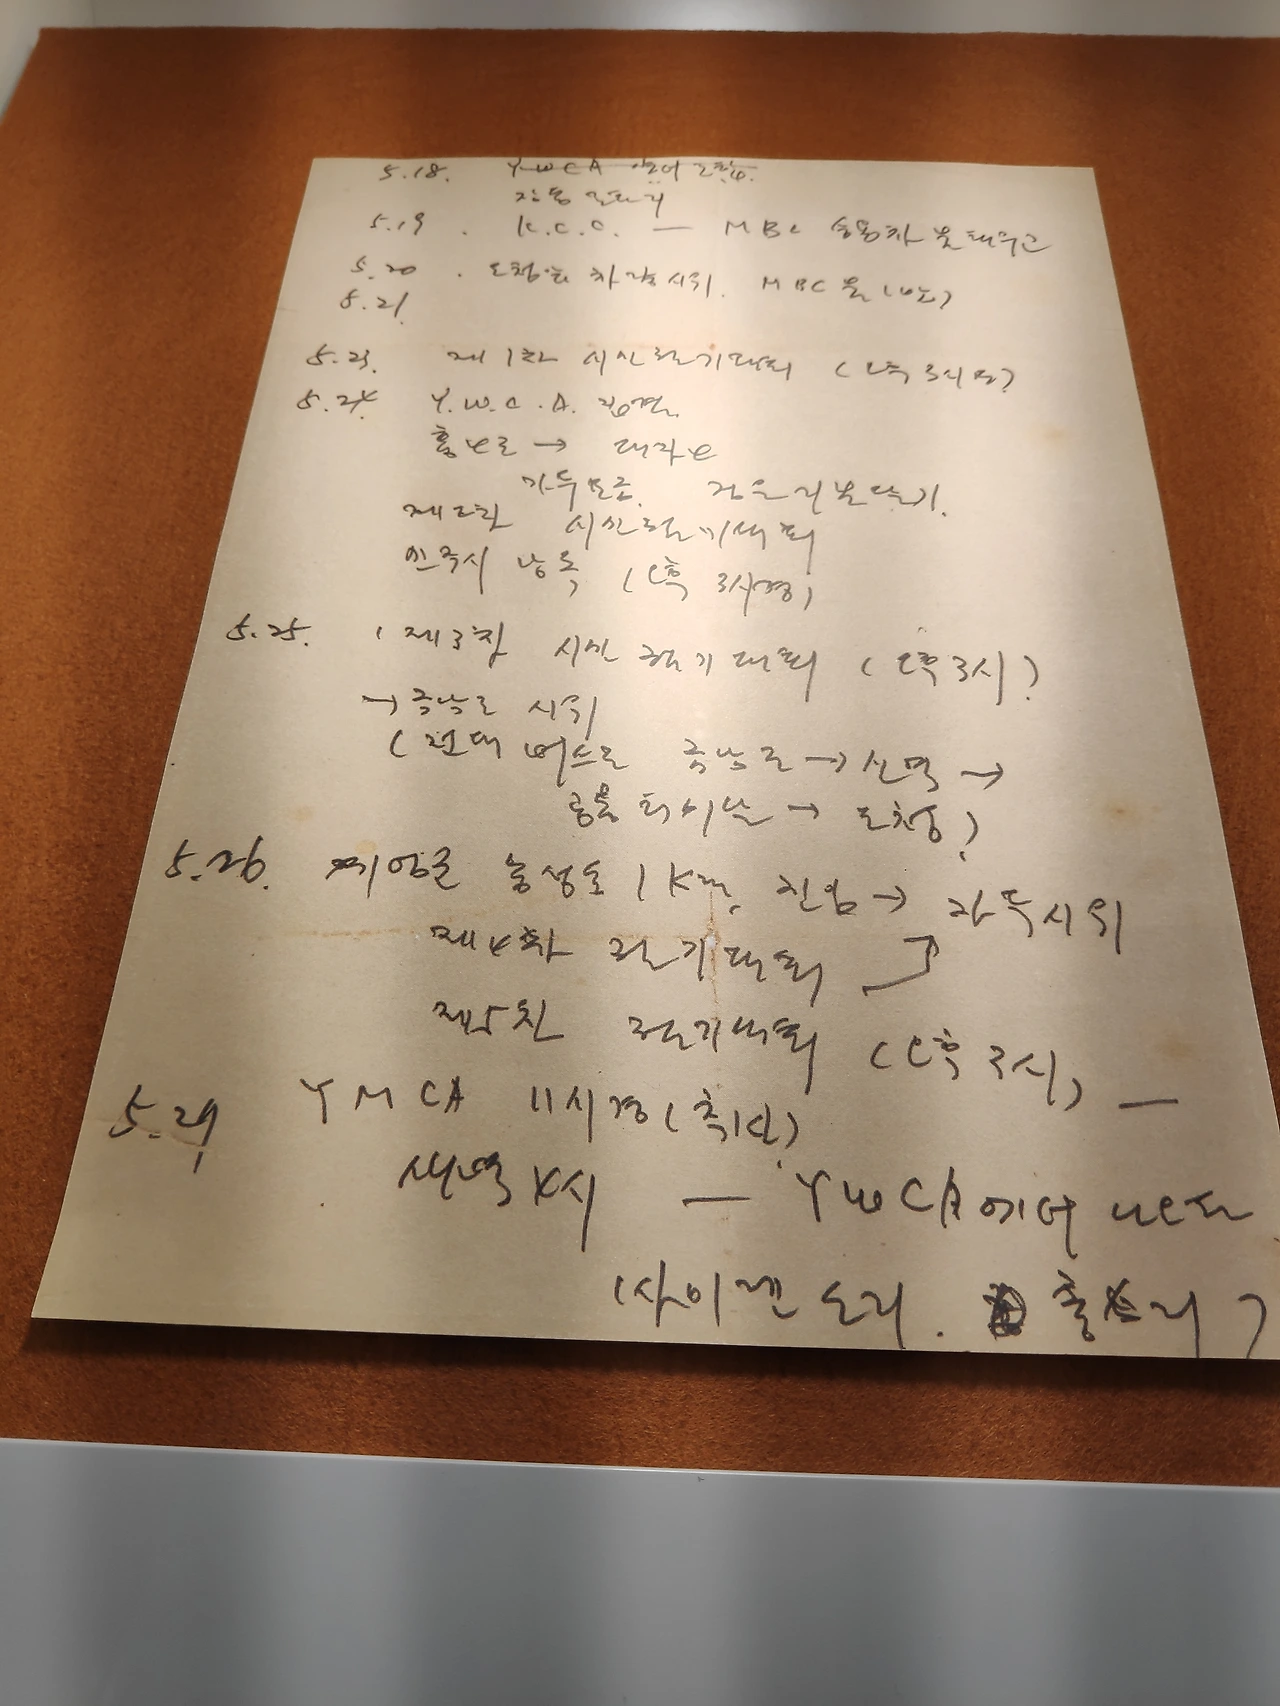 5.18. YWCA
5.19. K.C.C. — MBC 승용차 불태우고
5.20. 도청앞 차량시위. MBC 불
5.21.
5.23. 제1차 시민궐기대회 (오후 3시
5.24. Y.W.C.A. 점령.
홍보로 → 대자보
가두모금. 검은 리본 달기.
제2차 시민궐기대회
민주시 낭독 (오후 3시경)
5.25. 제3차 시민궐기대회 (오후 3시)
→ 금남로 시위
(전대 버스로 금남로 → 신역 →
공용터미날 → 도청)
5.26. 계엄군 농성동 1Km 진입 → 가두시위
제4차 궐기대회
제5차 궐기대회 (오후 3시) —
5.27 YMCA 11시경
새벽 4시 — YWCA에서 나오자
(사이렌 소리.